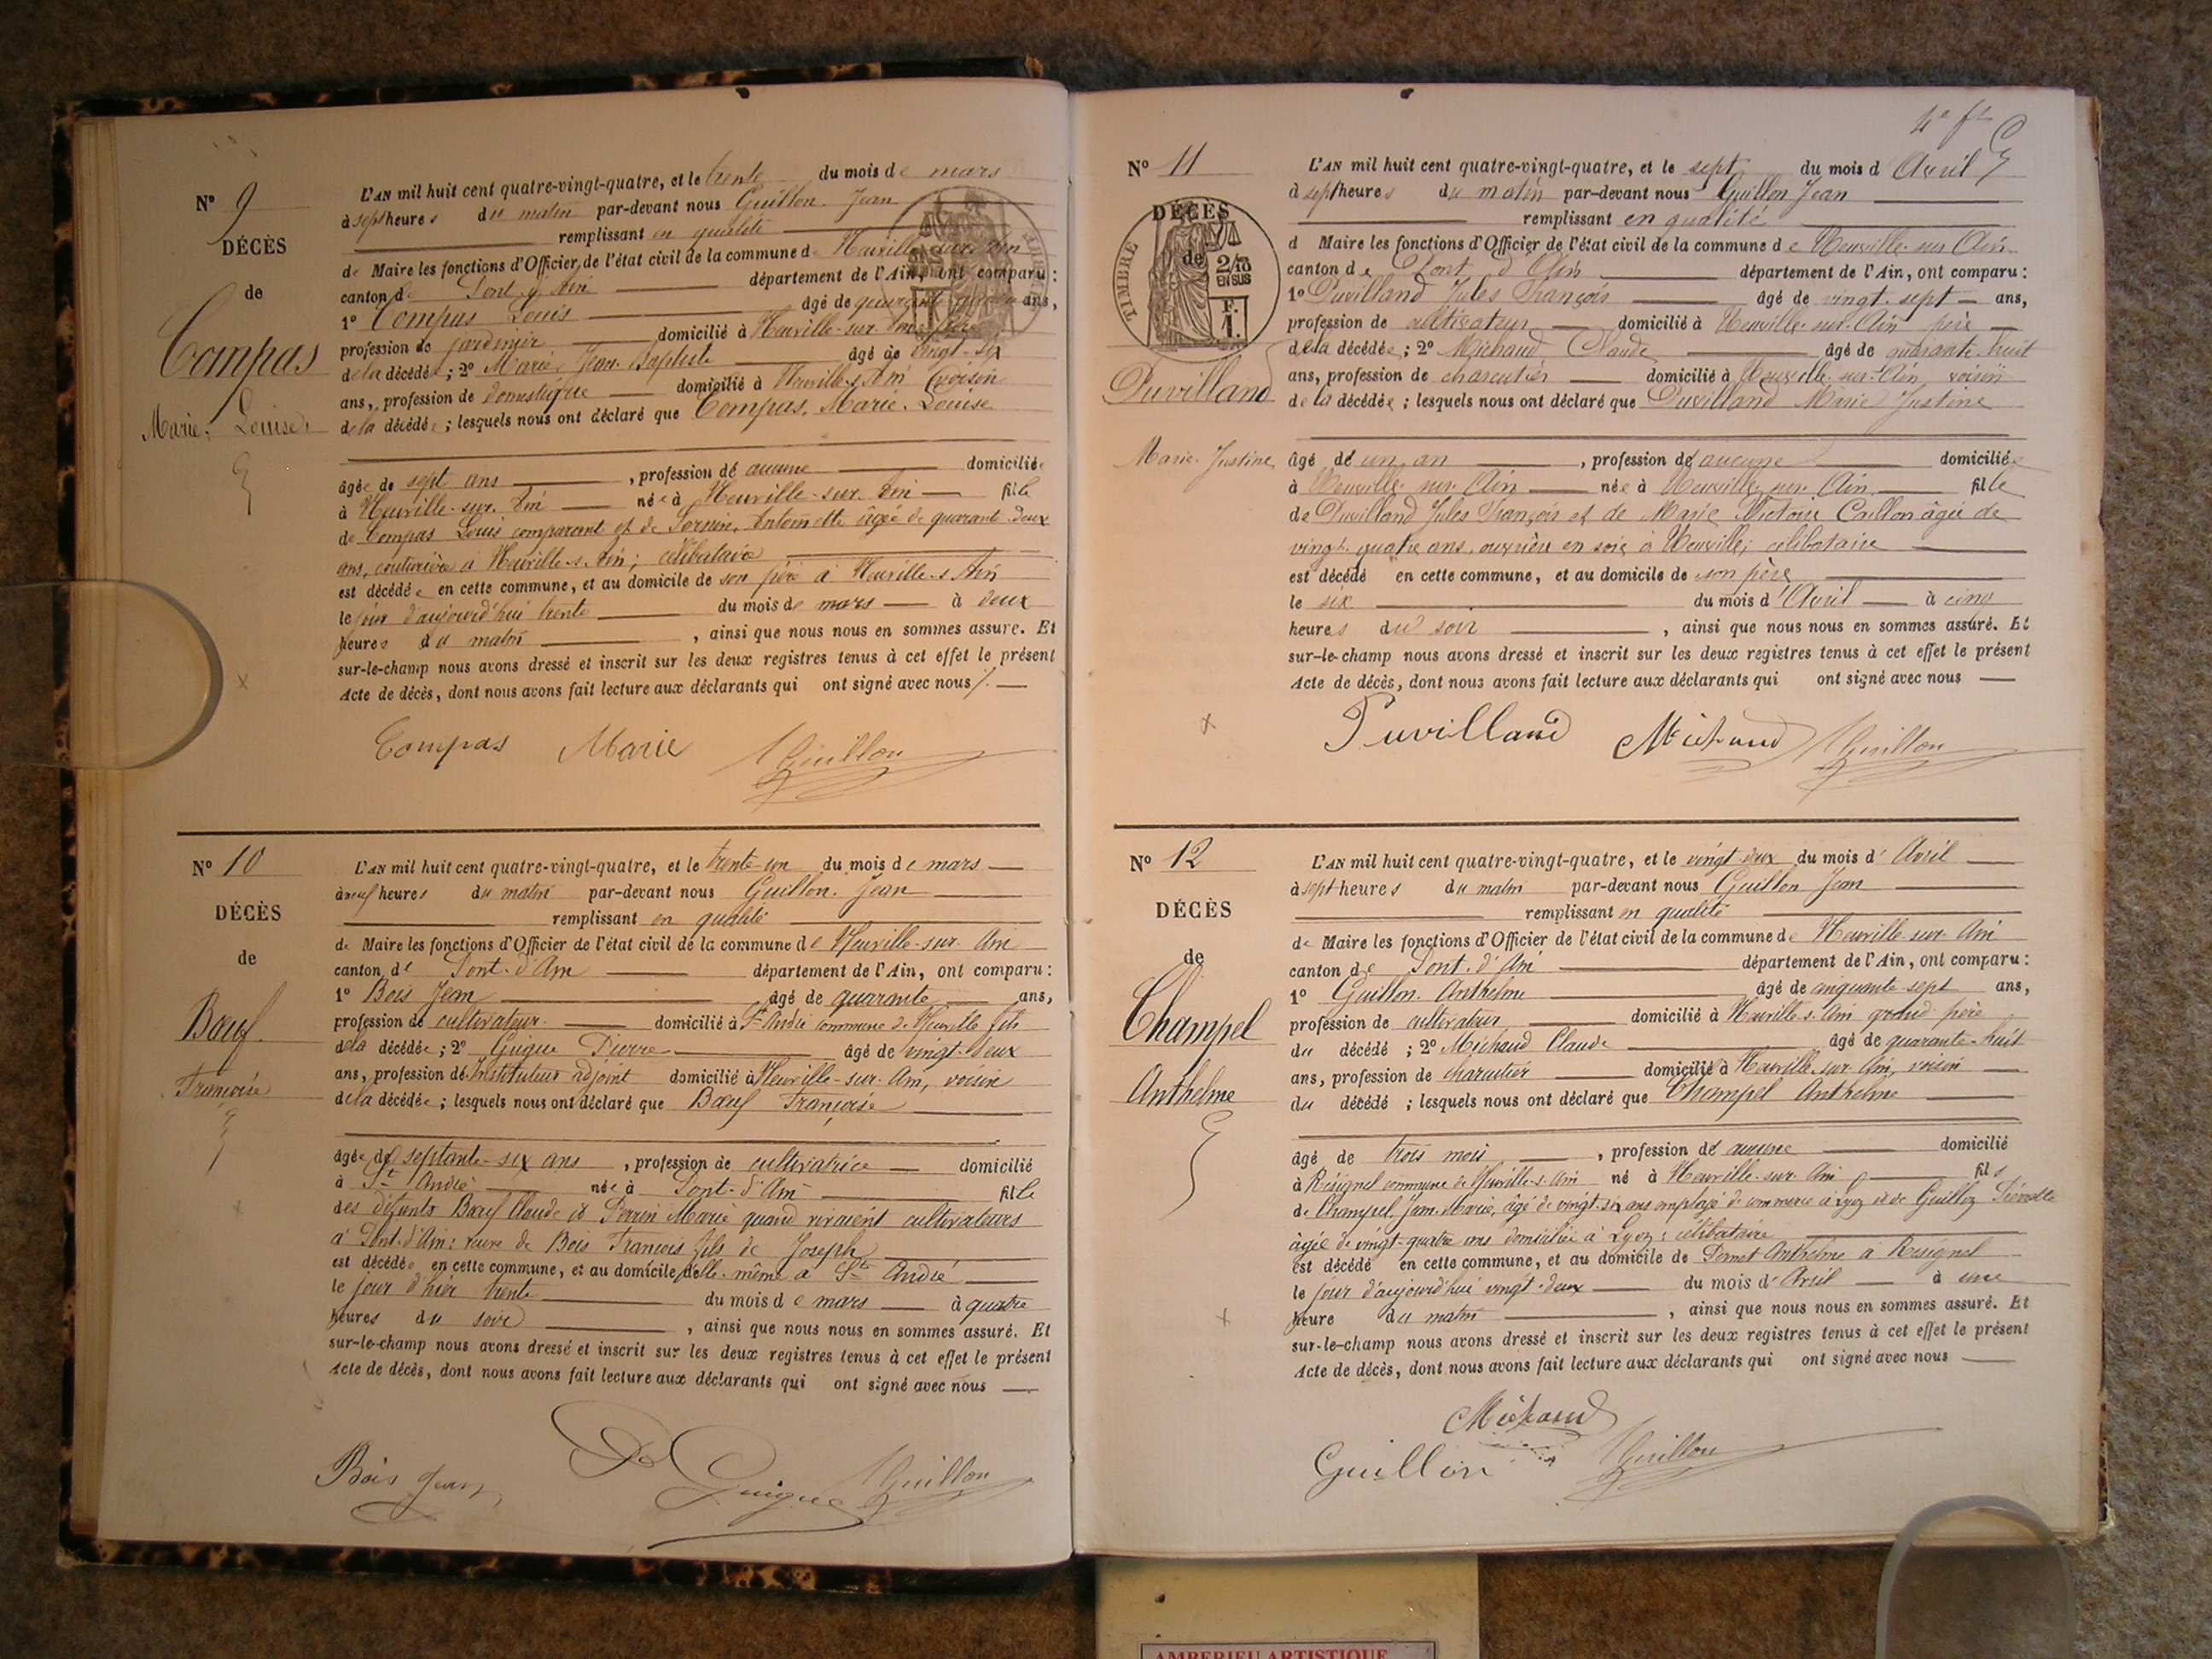 N° 9
DÉCÈS
de
Compas
Marie, Louise
L'AN mil huit cent quatre-vingt-quatre, et le trente du mois de mars
à sept heures du matin par-devant nous Guillon Jean
remplissant en qualité
de Maire les fonctions d'Officier de l'état civil de la commune de Neuville-sur-Ain
canton de Pont d'Ain département de l'Ain, ont comparu :
1° Compas Louis âgé de quarante ans,
profession de jardinier domicilié à Neuville-sur-Ain père
de la décédée ; 2° Marie, Jean-Baptiste âgé de vingt-six
ans, profession de domestique domicilié à Neuville-s-Ain voisin
de la décédée ; lesquels nous ont déclaré que Compas, Marie-Louise
âgée de sept ans, profession de aucune domiciliée
à Neuville-sur-Ain née à Neuville-sur-Ain fille
de Compas Louis comparant et de Antoinette âgée de quarante-deux
ans, couturière à Neuville-s-Ain ; célibataire
est décédée en cette commune, et au domicile de son père à Neuville-s-Ain
le jour d'aujourd'hui trente du mois de mars à deux
heures du matin, ainsi que nous nous en sommes assuré. Et
sur-le-champ nous avons dressé et inscrit sur les deux registres tenus à cet effet le présent
Acte de décès, dont nous avons fait lecture aux déclarants qui ont signé avec nous
Compas Marie Guillon
N° 10
DÉCÈS
de
Bœuf
Françoise
L'AN mil huit cent quatre-vingt-quatre, et le trente-un du mois de mars
à neuf heures du matin par-devant nous Guillon Jean
remplissant en qualité
de Maire les fonctions d'Officier de l'état civil de la commune de Neuville-sur-Ain
canton de Pont-d'Ain département de l'Ain, ont comparu :
1° Bois Jean âgé de quarante ans,
profession de cultivateur domicilié à St André commune de Neuville fils
de la décédée ; 2° Guigue Pierre âgé de vingt-deux
ans, profession de Instituteur adjoint domicilié à Neuville-sur-Ain, voisin
de la décédée ; lesquels nous ont déclaré que Bœuf Françoise
âgée de septante-six ans, profession de cultivatrice domicilié
à St André née à Pont-d'Ain fille
des défunts Bœuf Claude et Perrin Marie quand vivaient cultivateurs
à Pont-d'Ain ; veuve de Bois François fils de Joseph
est décédée en cette commune, et au domicile d'elle-même à St André
le jour d'hier trente du mois de mars à quatre
heures du soir, ainsi que nous nous en sommes assuré. Et
sur-le-champ nous avons dressé et inscrit sur les deux registres tenus à cet effet le présent
Acte de décès, dont nous avons fait lecture aux déclarants qui ont signé avec nous
Bois Jean Guigue Guillon
4e ft
N° 11
DÉCÈS
de
TIMBRE
2/10
EN SUS
F.
1.
Puvilland
Marie-Justine
L'AN mil huit cent quatre-vingt-quatre, et le sept du mois d'Avril
à sept heures du matin par-devant nous Guillon Jean
remplissant en qualité
d Maire les fonctions d'Officier de l'état civil de la commune de Neuville-sur-Ain
canton de Pont d'Ain département de l'Ain, ont comparu :
1° Puvilland Jules François âgé de vingt-sept ans,
profession de cultivateur domicilié à Neuville-sur-Ain père
de la décédée ; 2° Michaud Claude âgé de quarante-huit
ans, profession de charcutier domicilié à Neuville-sur-Ain voisin
de la décédée ; lesquels nous ont déclaré que Puvilland Marie Justine
âgé de un an, profession de aucune domiciliée
à Neuville-sur-Ain née à Neuville-sur-Ain fille
de Puvilland Jules François et de Marie Victoire Caillon âgée de
vingt-quatre ans, ouvrière en soie à Neuville ; célibataire
est décédé en cette commune, et au domicile de son père
le six du mois d'Avril à cinq
heures du soir, ainsi que nous nous en sommes assuré. Et
sur-le-champ nous avons dressé et inscrit sur les deux registres tenus à cet effet le présent
Acte de décès, dont nous avons fait lecture aux déclarants qui ont signé avec nous
Puvilland Michaud Guillon
N° 12
DÉCÈS
de
Champel
Anthelme
L'AN mil huit cent quatre-vingt-quatre, et le vingt-deux du mois d'Avril
à sept heures du matin par-devant nous Guillon Jean
remplissant en qualité
de Maire les fonctions d'Officier de l'état civil de la commune de Neuville-sur-Ain
canton de Pont-d'Ain département de l'Ain, ont comparu :
1° Guillon Anthelme âgé de cinquante-sept ans,
profession de cultivateur domicilié à Neuville-s-Ain grand-père
du décédé ; 2° Michaud Claude âgé de quarante-huit
ans, profession de charcutier domicilié à Neuville-sur-Ain, voisin
du décédé ; lesquels nous ont déclaré que Champel Anthelme
âgé de trois mois, profession de aucune domicilié
à Résignel commune de Neuville-s-Ain né à Neuville-sur-Ain fils
de Champel, Jean-Marie, âgé de vingt-six ans employé de commerce à Lyon et de Guillon
âgée de vingt-quatre ans domiciliée à Lyon ; célibataire
est décédé en cette commune, et au domicile de Pernet Anthelme à Résignel
le jour d'aujourd'hui vingt-deux du mois d'Avril à une
heure du matin, ainsi que nous nous en sommes assuré. Et
sur-le-champ nous avons dressé et inscrit sur les deux registres tenus à cet effet le présent
Acte de décès, dont nous avons fait lecture aux déclarants qui ont signé avec nous
Michaud
Guillon Guillon
AMBERIEU ARTISTIQUE